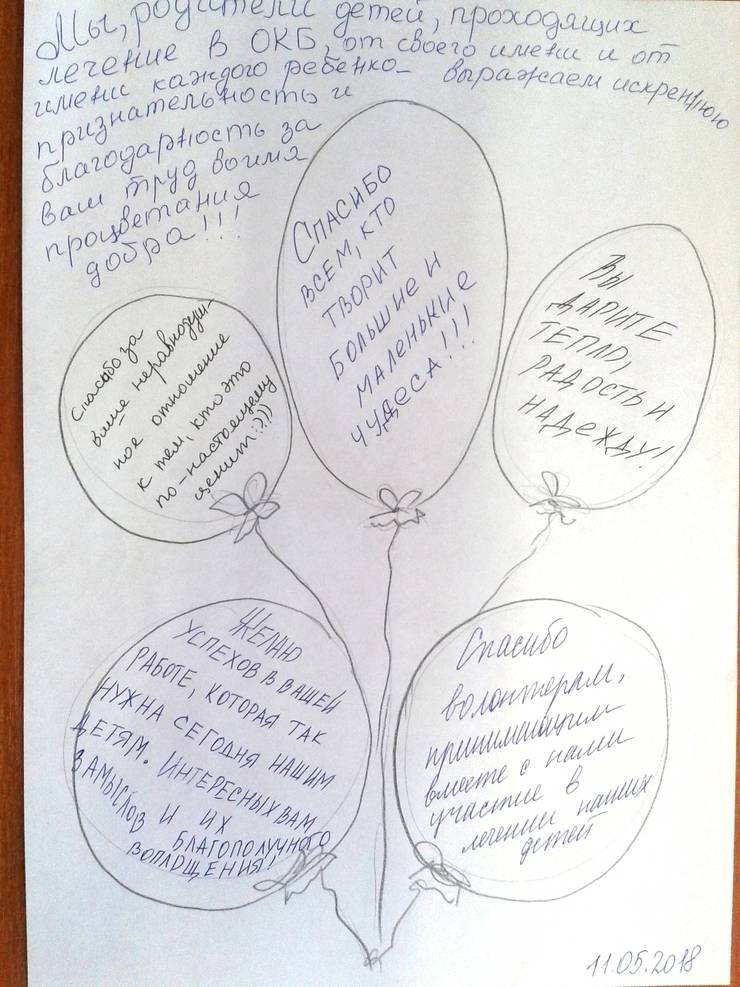 Мы, родители детей, проходящих
лечение в ОКБ, от своего имени и от
имени каждого ребенка выражаем искреннюю
признательность и
благодарность за
ваш труд во имя
процветания
добра!!!
Спасибо
всем, кто
творит
большие и
маленькие
чудеса!!!
Вы
дарите
тепло,
радость и
надежду!
Спасибо за
ваше неравнодуш-
ное отношение
к тем, кто это
по-настоящему
ценит:-)))
Желаю
успехов в вашей
работе, которая так
нужна сегодня нашим
детям. Интересных вам
замыслов и их
благополучного
воплощения!
Спасибо
волонтерам,
принимающим
вместе с нами
участие в
лечении наших
детей
11.05.2018